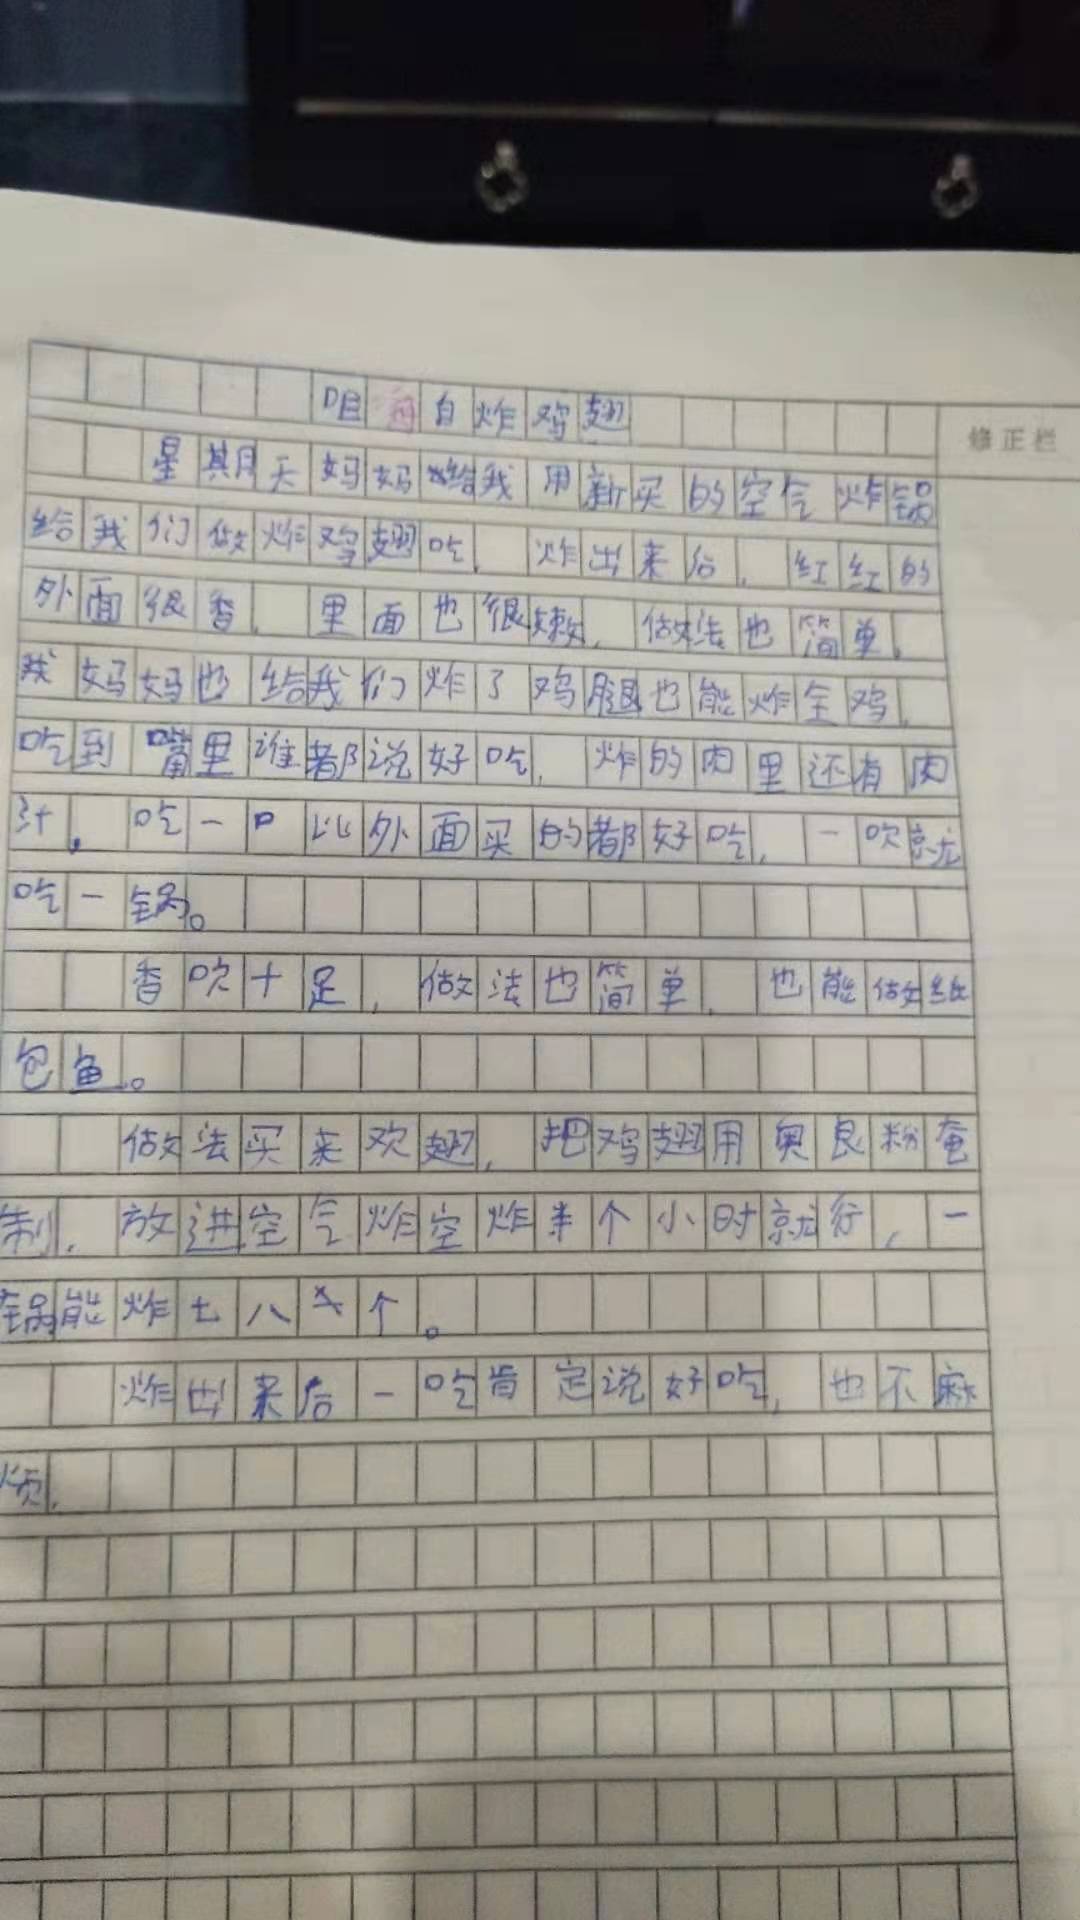 咀 自炸鸡翅
修正栏
星期天妈妈给我用新买的空气炸锅
给我们做炸鸡翅吃,炸出来后,红红的
外面很香,里面也很嫩,做法也简单,
我妈妈也给我们炸了鸡腿也能炸全鸡,
吃到嘴里谁都说好吃,炸的肉里还有肉
汁,吃一口比外面买的都好吃,一吹就
吃一锅。
香吹十足,做法也简单,也能做纸
包鱼。
做法买来欢翅,把鸡翅用奥良粉奄
制,放进空气炸空炸半个小时就行,一
锅能炸七八个。
炸出来后一吃肯定说好吃,也不麻
烦,